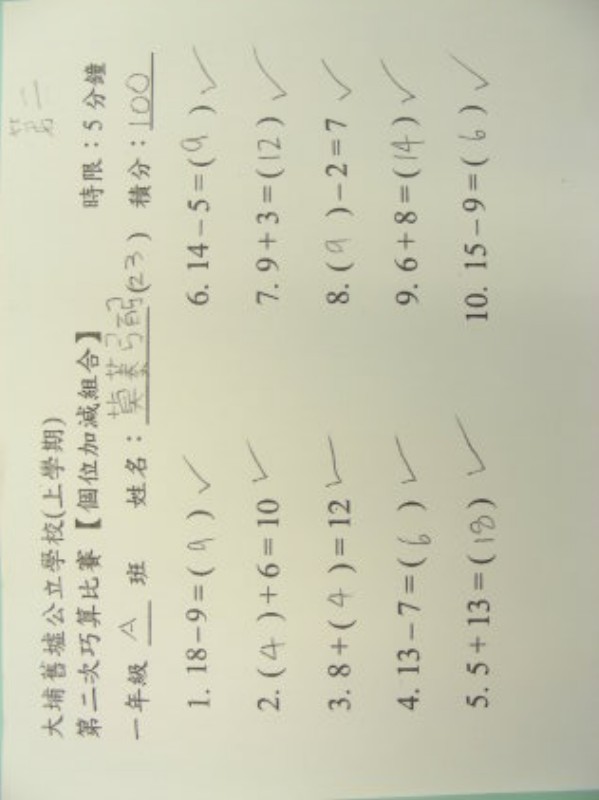 第二
大埔舊墟公立學校(上學期)
第二次巧算比賽【個位加減組合】 時限：5分鐘
一年級 A 班 姓名： (23) 積分：100
1. 18-9=(9) ✓
2. (4)+6=10 ✓
3. 8+(4)=12 ✓
4. 13-7=(6) ✓
5. 5+13=(18) ✓
6. 14-5=(9) ✓
7. 9+3=(12) ✓
8. (9)-2=7 ✓
9. 6+8=(14) ✓
10. 15-9=(6) ✓